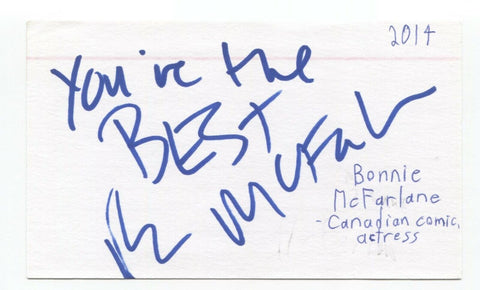 2014
You're the
BEST
B McFarl
Bonnie
McFarlane
- Canadian comic,
actress